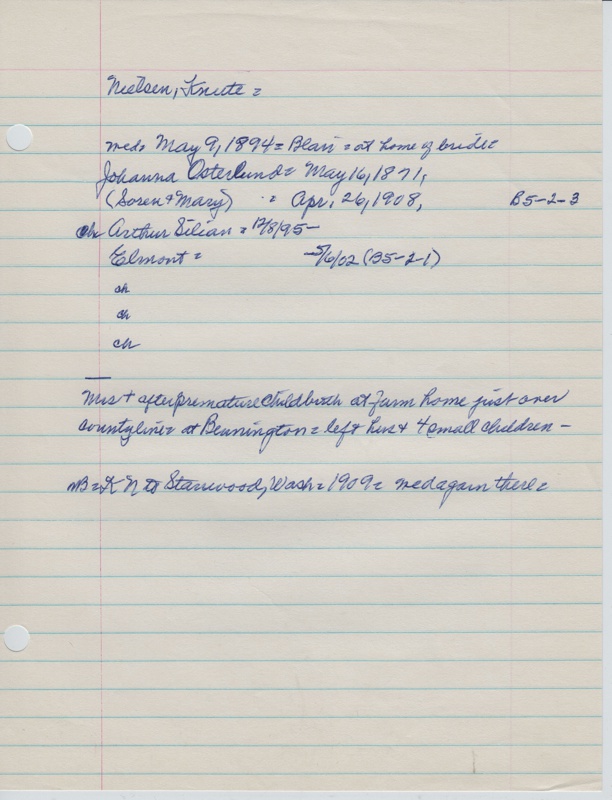 Nielsen, Knute =
med= May 9, 1894 = Blair = at home of bride =
Johanna Osterlund = May 16, 1871,
(Soren & Mary) = Apr, 26, 1908, B5-2-3
ch Arthur Silian = 12/8/95-
Elmont = 5/6/02 (B5-2-1)
ch
ch
ch
Mrs + after premature childbirth at farm home just over
countyline = at Bennington = left hus + 4 small children -
= K N to Stanwood, Wash = 1909 = med again there =